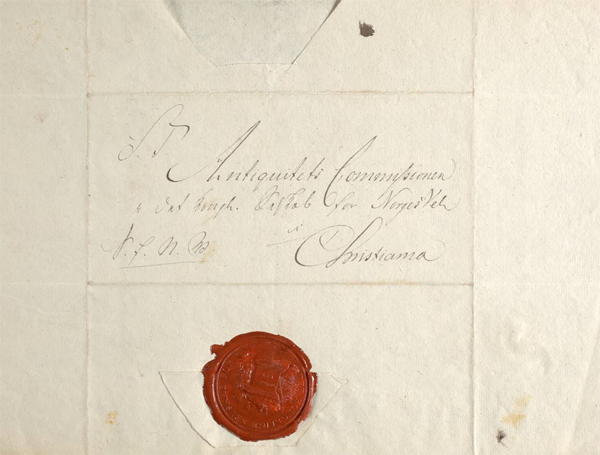 S. T.
Antiquitets Commissionen
i det kongl. Selskab for Norges Vel
S. f. N. V.
i
Christiania